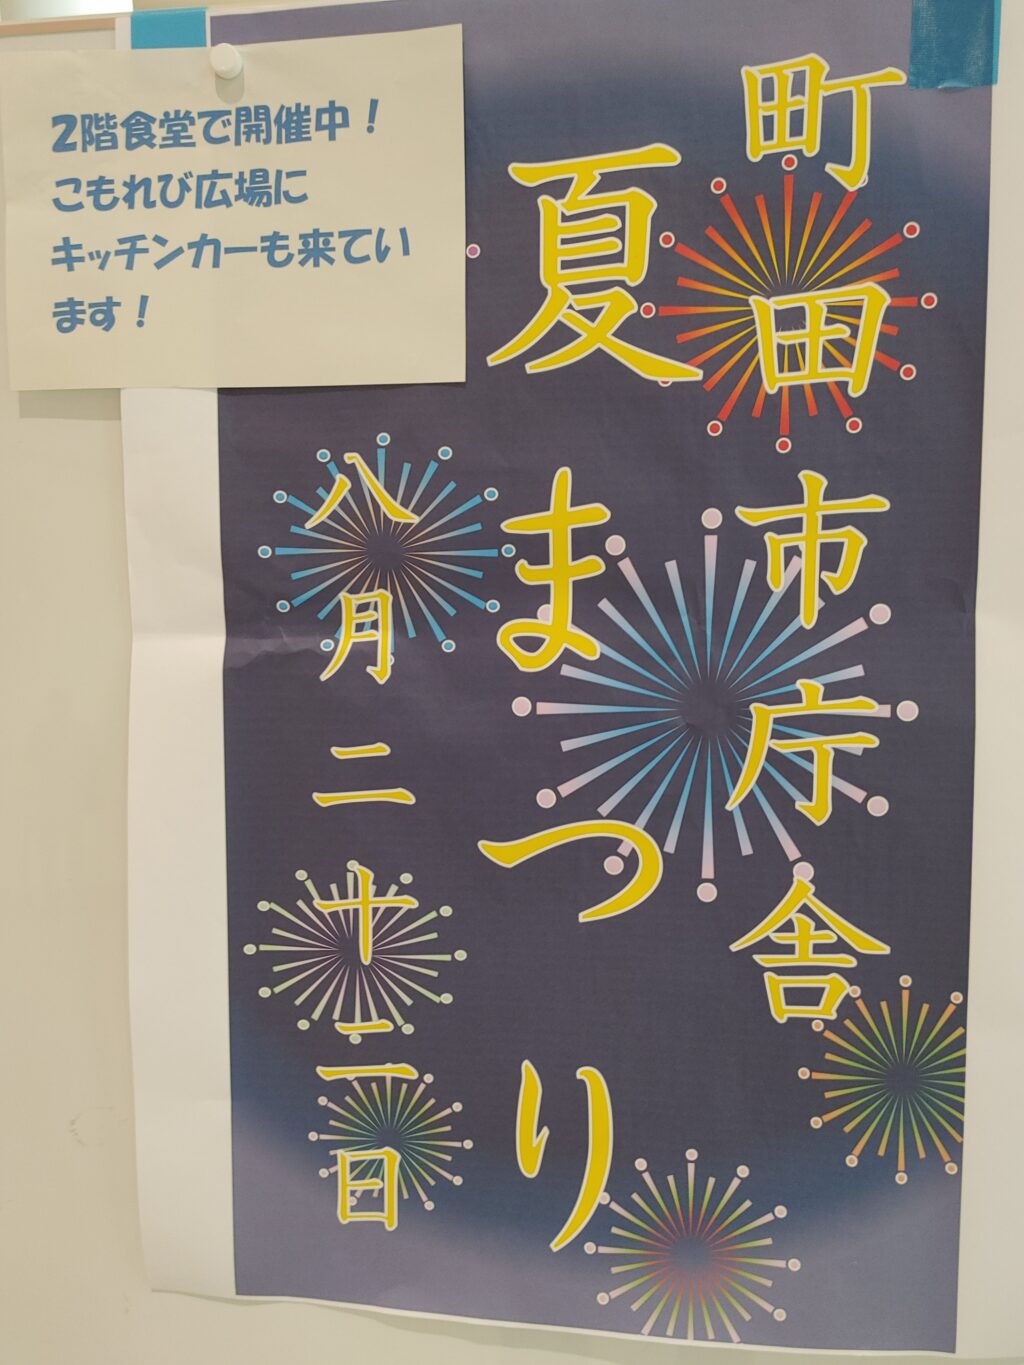 2階食堂で開催中！
こもれび広場に
キッチンカーも来てい
ます！
町田市庁舎
夏まつり
八月二十二日